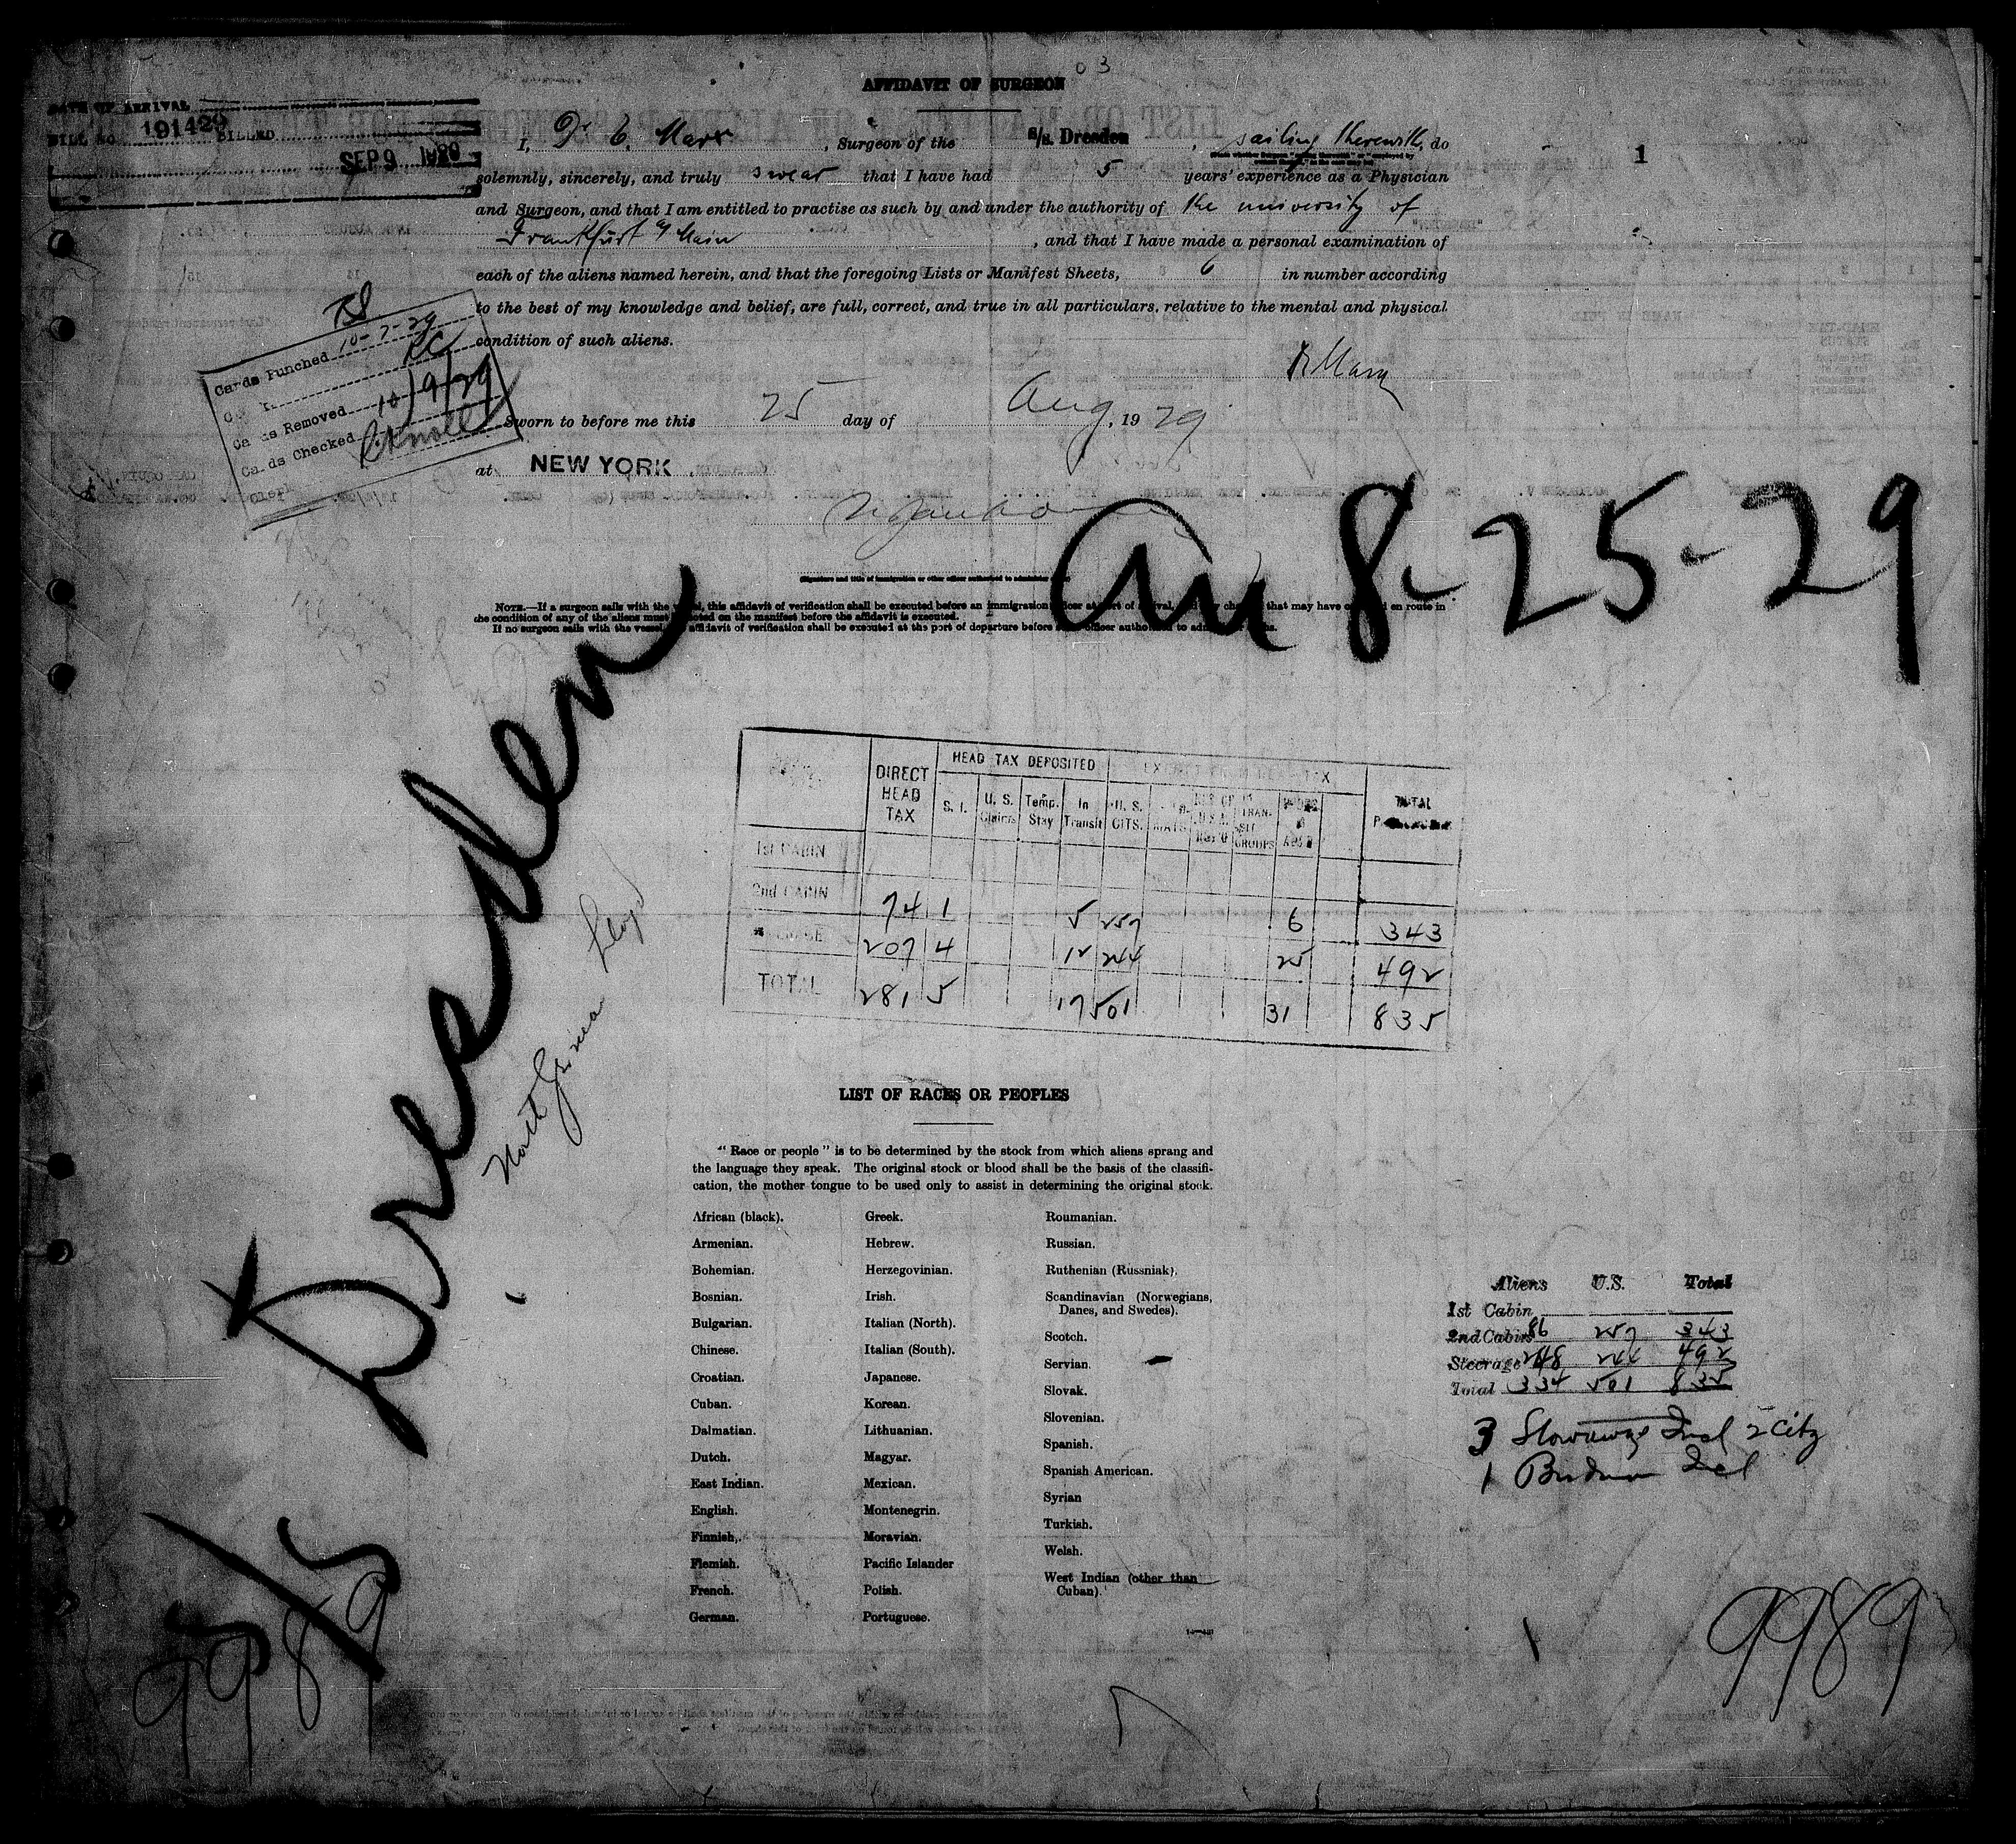 AFFIDAVIT OF SURGEON
03
DATE OF ARRIVAL
BILL No. 191429 BILLED
SEP 9 1929
1
I, Dr E. Marx, Surgeon of the s/s. Dresden, sailing therewith, do
solemnly, sincerely, and truly swear that I have had 5 years' experience as a Physician
and Surgeon, and that I am entitled to practise as such by and under the authority of the university of
Frankfurt a/Main, and that I have made a personal examination of
each of the aliens named herein, and that the foregoing Lists or Manifest Sheets, 6 in number according
to the best of my knowledge and belief, are full, correct, and true in all particulars, relative to the mental and physical
condition of such aliens.
Cards Punched 10-7-29
Cards Removed 10/9/29
Cards Checked
Clerk
Sworn to before me this 25 day of Aug, 1929
at NEW YORK
(Signature and title of immigration or other officer authorized to administer
NOTE.—If a surgeon sails with the vessel, this affidavit of verification shall be executed before an immigration officer at port of arrival, and any changes that may have occurred en route in
the condition of any of the aliens must be noted on the manifest before the affidavit is executed.
If no surgeon sails with the vessel, affidavit of verification shall be executed at the port of departure before officer authorized to administer oaths.
Dresden
8-25-29
North German Lloyd
DIRECT HEAD TAX HEAD TAX DEPOSITED EXEMPT FROM HEAD TAX TOTAL
S. I. U. S. Claims Temp. Stay In Transit U. S. CITS. TRANSIT GROUPS
1st CABIN
2nd CABIN 74 1 5 257 6 343
207 4 12 244 25 492
TOTAL 281 5 17 501 31 835
LIST OF RACES OR PEOPLES
"Race or people" is to be determined by the stock from which aliens sprang and
the language they speak. The original stock or blood shall be the basis of the classifi-
cation, the mother tongue to be used only to assist in determining the original stock.
African (black).
Armenian.
Bohemian.
Bosnian.
Bulgarian.
Chinese.
Croatian.
Cuban.
Dalmatian.
Dutch.
East Indian.
English.
Finnish.
Flemish.
French.
German.
Greek.
Hebrew.
Herzegovinian.
Irish.
Italian (North).
Italian (South).
Japanese.
Korean.
Lithuanian.
Magyar.
Mexican.
Montenegrin.
Moravian.
Pacific Islander
Polish.
Portuguese.
Roumanian.
Russian.
Ruthenian (Russniak).
Scandinavian (Norwegians,
Danes, and Swedes).
Scotch.
Servian.
Slovak.
Slovenian.
Spanish.
Spanish American.
Syrian
Turkish.
Welsh.
West Indian (other than
Cuban).
Aliens U.S. Total
1st Cabin
2nd Cabin 86 257 343
Steerage 248 244 492
Total 334 501 835
3 Stowaways Incl 2 Citz
1 Incl
9989
9989